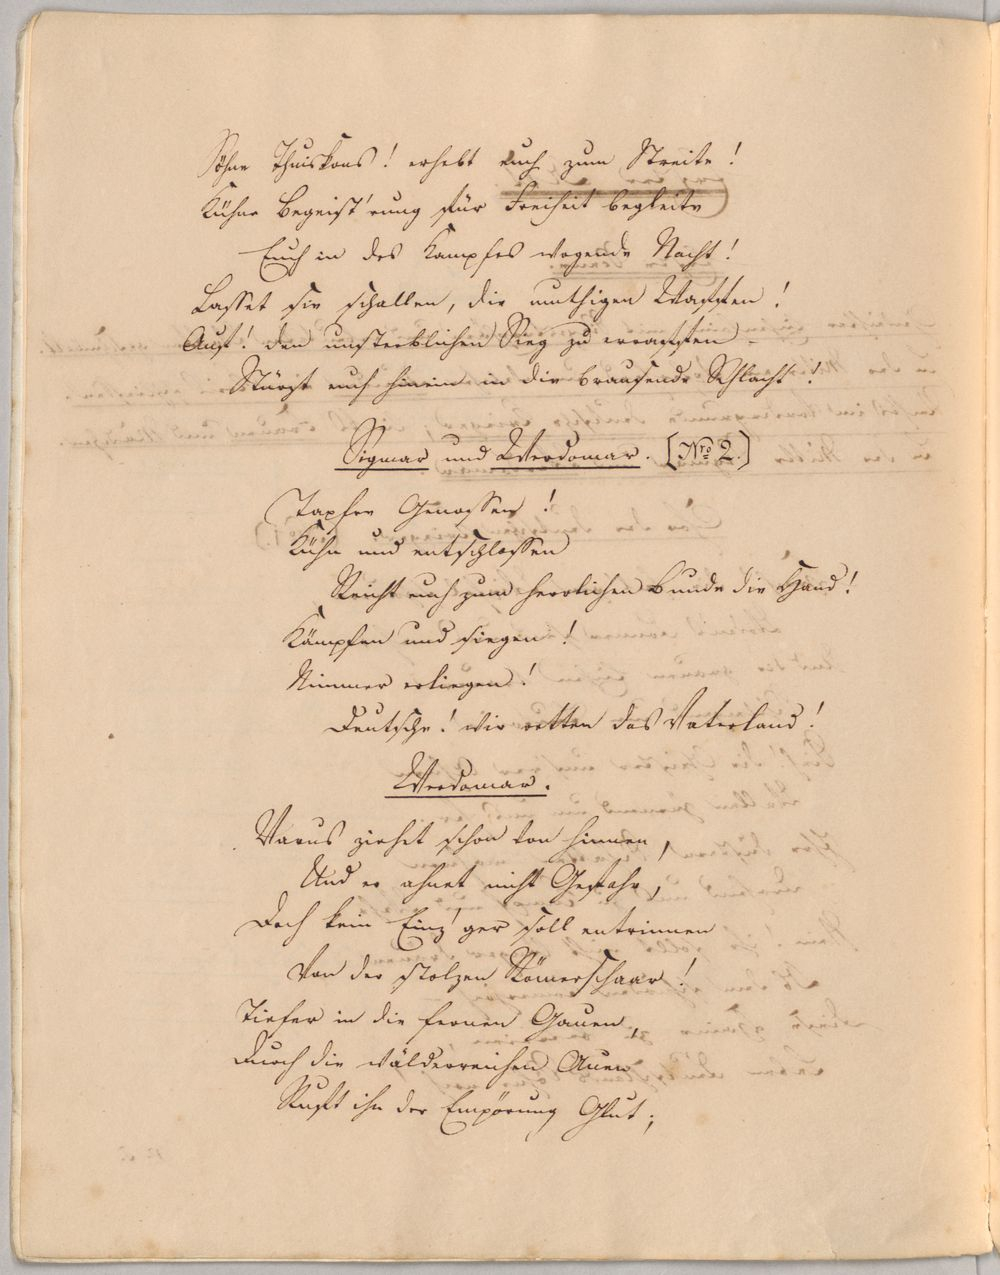 Söhne Thuiskons! erhebt euch zum Streite!
Kühne Begeist'rung für Freiheit begleite
Euch in des Kampfes wogende Nacht!
Lasset sie schallen, die muthigen Waffen!
Auf! den unsterblichen Sieg zu erraffen
Stürzt euch hinein in die brausende Schlacht!
Sigmar und Werdomar. [Nro 2.]
Tapfre Genossen!
Kühn und entschlossen
Reicht euch zum herrlichen Bunde die Hand!
Kämpfen und siegen!
Nimmer erliegen!
Deutsche! wir retten das Vaterland!
Werdomar.
Varus ziehet schon von hinnen,
Und er ahnet nicht Gefahr,
Doch kein Einz'ger soll entrinnen
Von der stolzen Römerschaar!
Tiefer in die fernen Gauen,
Durch die wälderreichen Auen
Ruft ihn der Empörung Glut;